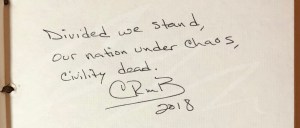 Divided we stand,
our nation under chaos,
civility dead.
CRmB
2018